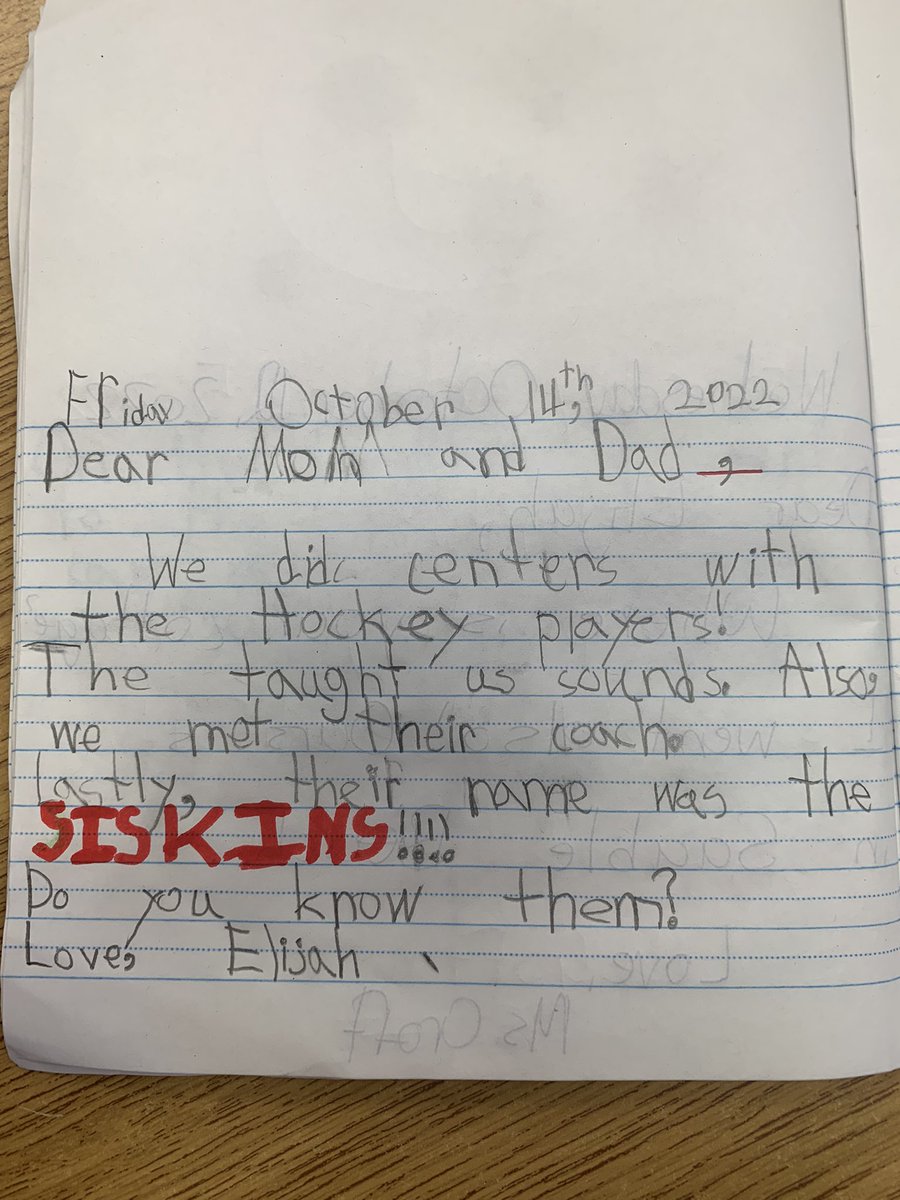 Friday October 14th, 2022
Dear Mom and Dad,
We did centers with
the Hockey players!
The taught us sounds. Also,
we met their coach.
lastly, their name was the
SISKINS!!!!
Do you know them?
Love, Elijah
Ms Croft